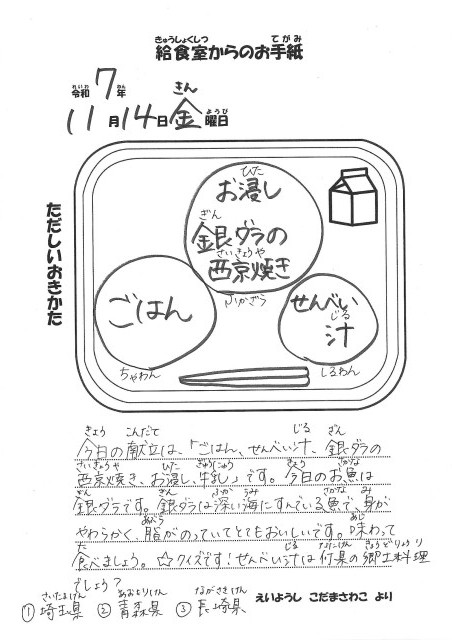 きゅうしょくしつ てがみ
給食室からのお手紙
れいわ ねん きん
令和7年
ようび
11月14日金曜日
ただしいおきかた
ひた
お浸し
ぎん
銀ダラの
さいきょうや
西京焼き
ごはん
せんべい
じる
汁
ふかざら
ちゃわん
しるわん
きょう こんだて じる ぎん
今日の献立は、「ごはん、せんべい汁、銀ダラの
さいきょうや ひた ぎゅうにゅう きょう さかな
西京焼き、お浸し、牛乳」です。今日のお魚は
ぎん ぎん ふか うみ さかな み
銀ダラです。銀ダラは深い海にすんでいる魚で、身が
あぶら あじ
やわらかく、脂がのっていてとてもおいしいです。味わって
た じる なにけん きょうどりょうり
食べましょう。☆クイズです!せんべい汁は何県の郷土料理
でしょう?
さいたまけん あおもりけん ながさきけん
①埼玉県 ②青森県 ③長崎県
えいようし こだまさわこ より